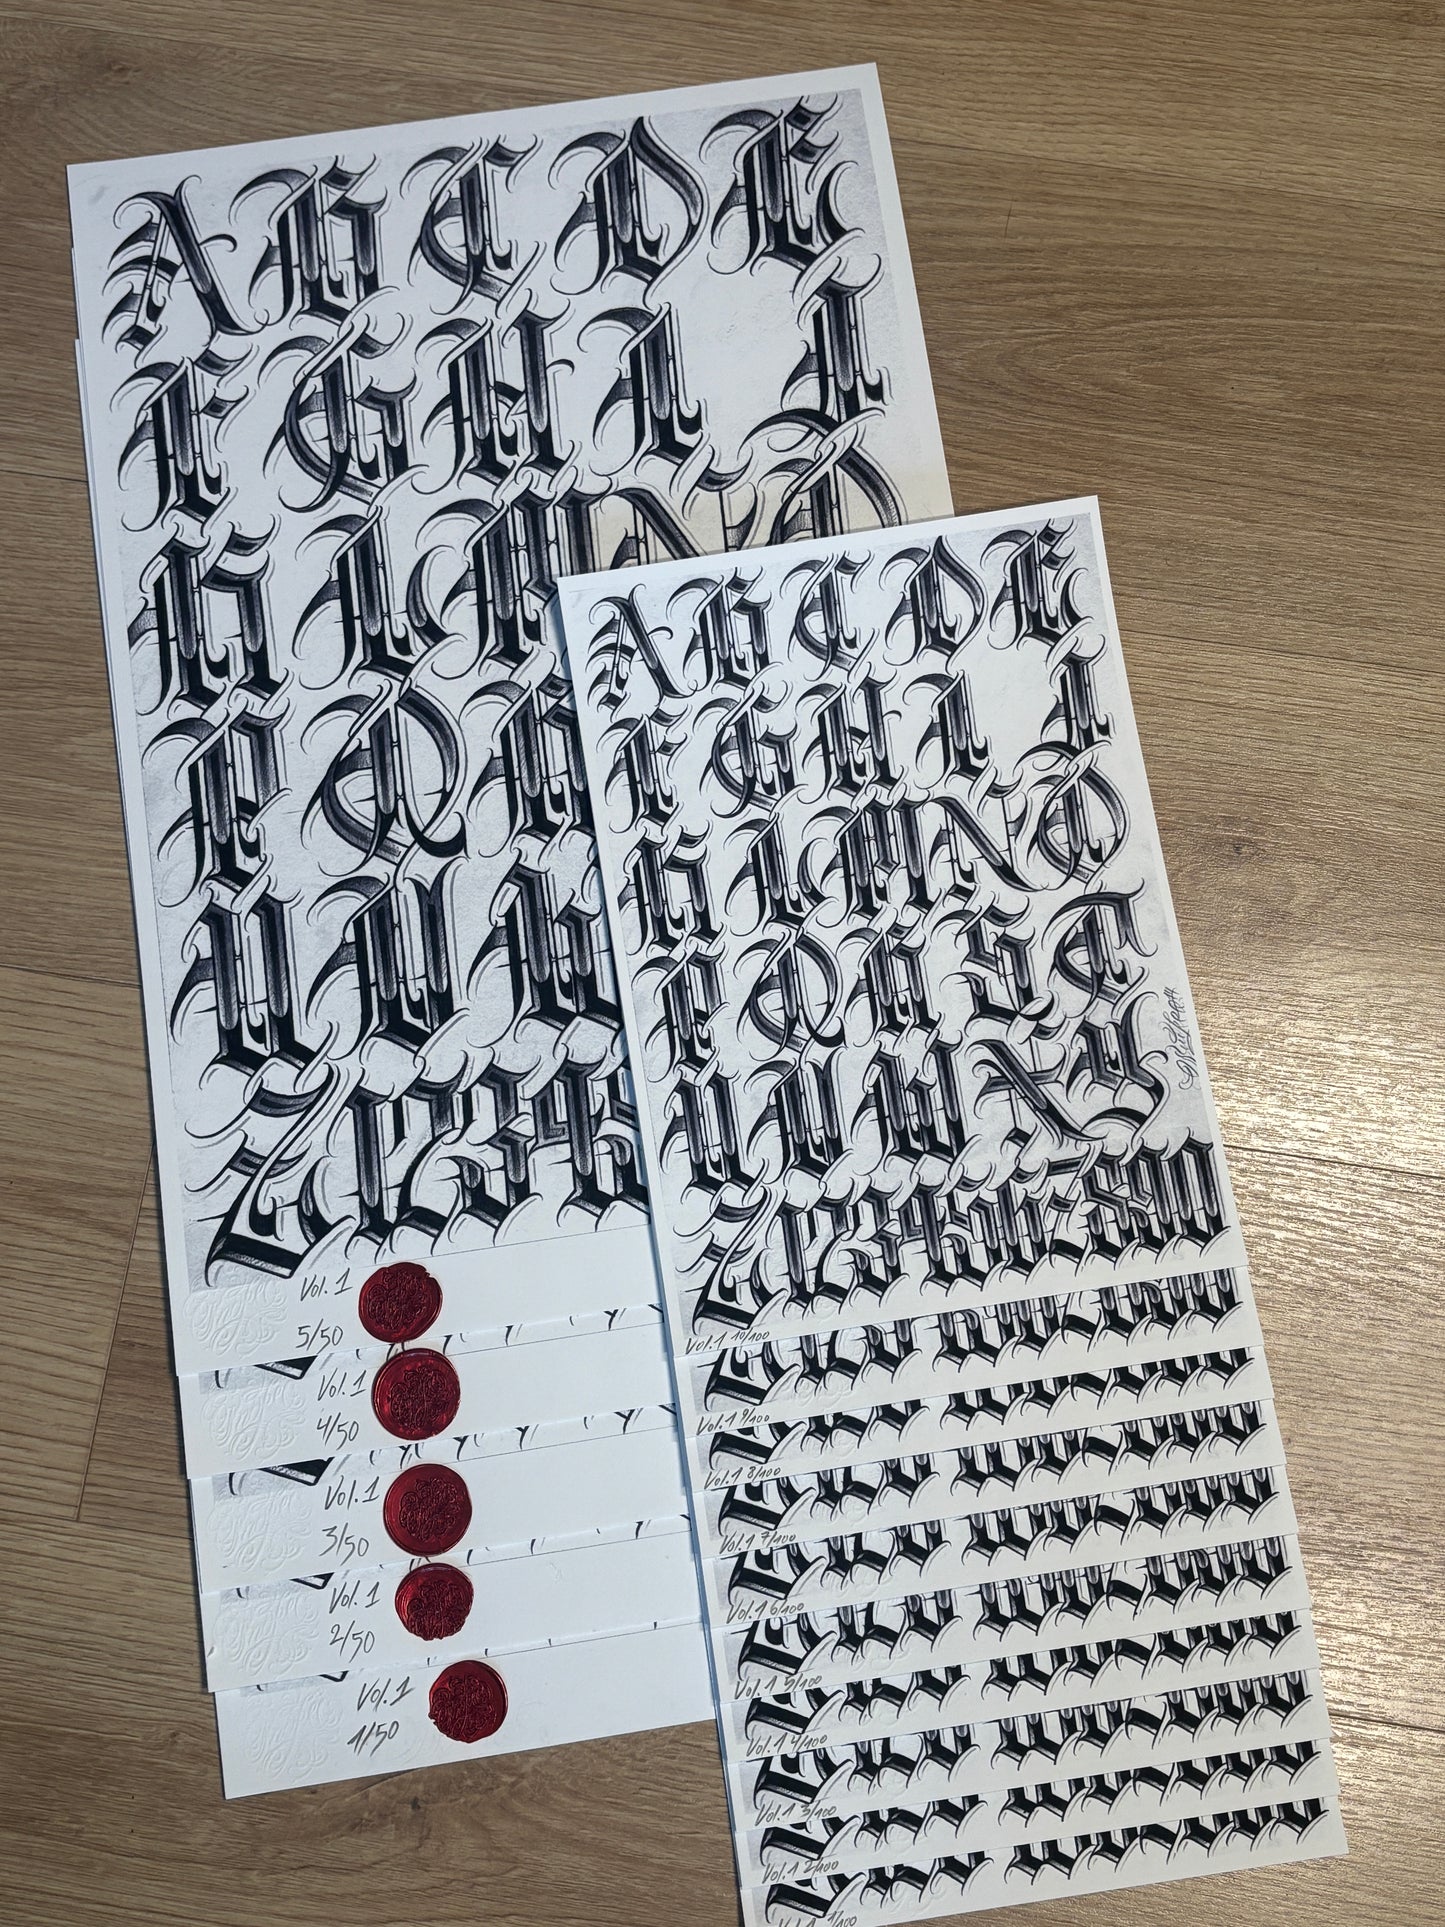 A B C D E
F G H I J
K L M N O
P Q R
U V W
Z 1 2 3 4 5 6
Vol. 1
5/50
Vol. 1
4/50
Vol. 1
3/50
Vol. 1
2/50
Vol. 1
1/50
A B C D E
F G H I J
K L M N O
P Q R S T
U V W X Y
Z 1 2 3 4 5 6 7 8 9 0
Vol. 1 10/100
Vol. 1 9/100
Vol. 1 8/100
Vol. 1 7/100
Vol. 1 6/100
Vol. 1 5/100
Vol. 1 4/100
Vol. 1 3/100
Vol. 1 2/100
Vol. 1 1/100